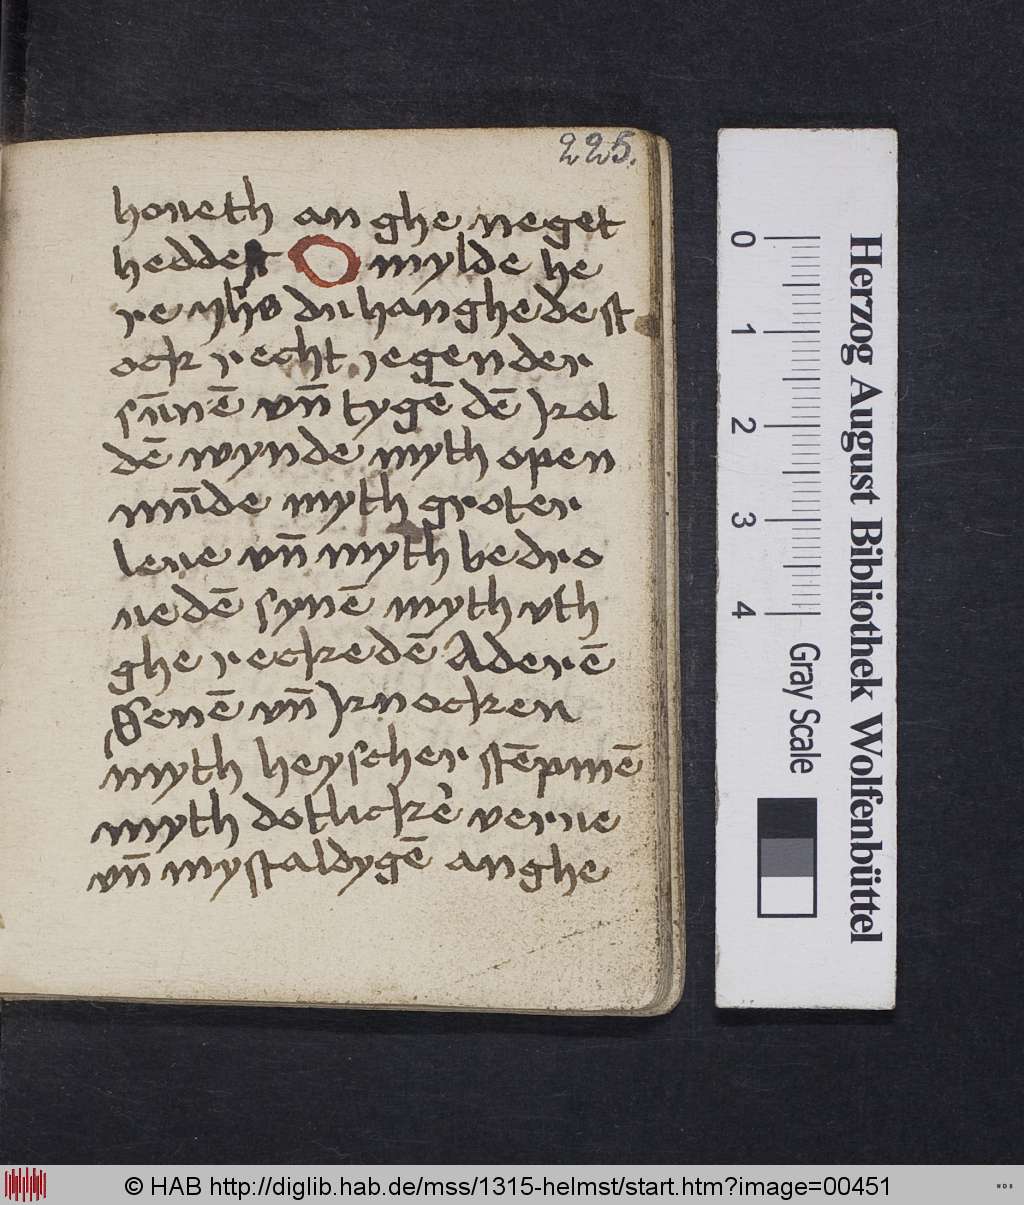 225.
honeth an ghe neget
heddest O mylde he
re yhs du hanghedest
ock recht jegen der
sūnē vn̄ tygē dē kol
dē wynde myth open
mūde myth groter
leue vn̄ myth bedro
uedē synē myth vth
ghe reckedē Aderē
Senē vn̄ knocken
myth heyscher stēpmē
myth dotlickē verue
vn̄ mystaldygē anghe
0 1 2 3 4
Gray Scale
Herzog August Bibliothek Wolfenbüttel
© HAB http://diglib.hab.de/mss/1315-helmst/start.htm?image=00451